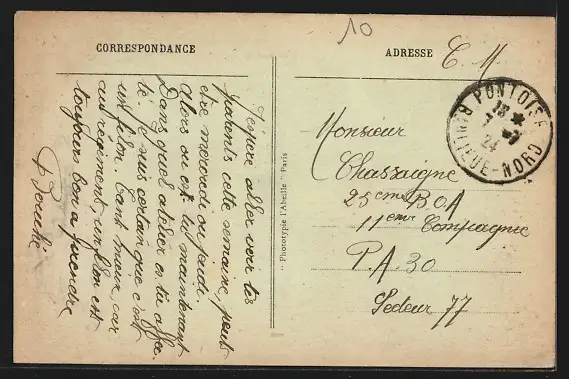 10
CORRESPONDANCE
ADRESSE
C. M.
PONTOISE
18 *
24
BANLIEUE-NORD
J'espère aller voir tes
parents cette semaine, peut
être mercredi ou jeudi.
Alors où es tu maintenant
Dans quel atelier es tu affec
té, je suis certain que c'est
un filon. Tant mieux, car
au régiment, un filon est
toujours bon a prendre
"Phototypie l'Abeille" Paris
Monsieur
Chassaigne
25eme B.O.A
11eme Compagnie
P.A. 30
Secteur 77